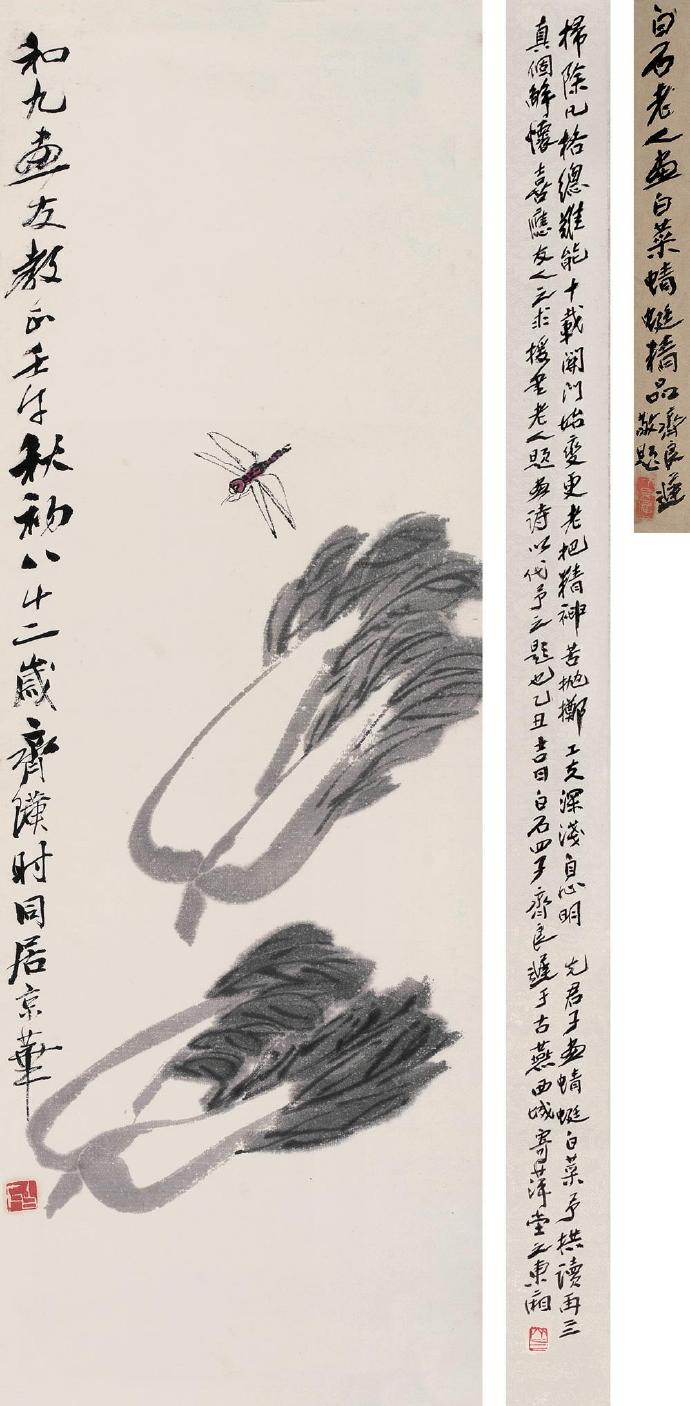 和九畫友教正壬午秋初八十二歲齊璜时同居京華
白石
掃除凡格總難能十載關門始變更老把精神苦拋擲工夫深淺自心明 先君子畫蜻蜓白菜予拱讀再三
真個解懷喜應友人之求援書老人題畫詩以代予之題也乙丑吉日白石四子齊良遲于古燕西城寄萍堂之東廂
白石老人畫白菜蜻蜓精品
齊良遲
敬題